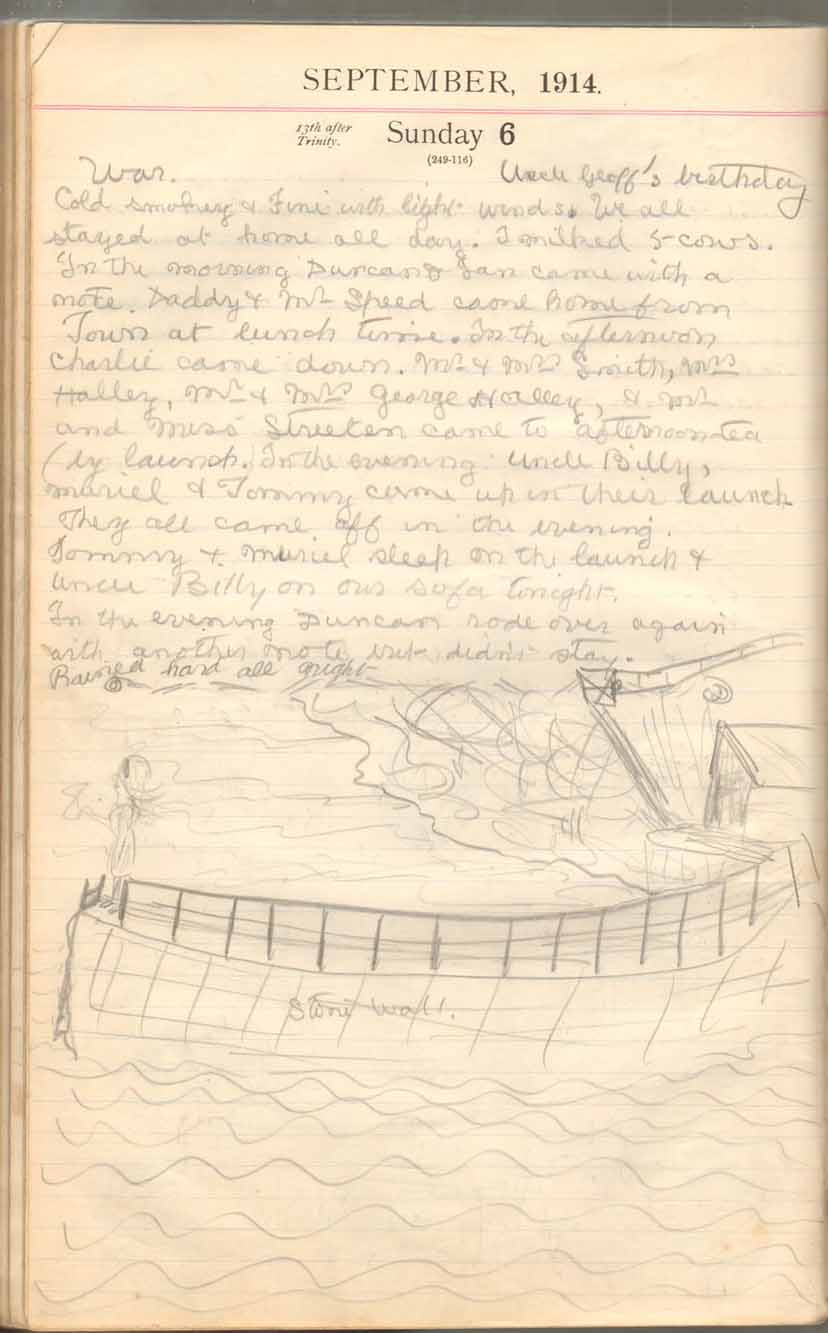 SEPTEMBER, 1914.
13th after
Trinity.
Sunday 6
(249-116)
War. Uncle Geoff's birthday
Cold smokey & Fine with light winds. We all
stayed at home all day. I milked 5 cows.
In the morning Duncan & Ian came with a
note. Daddy & Mr Speed came home from
Town at lunch time. In the afternoon
Charlie came down. Mr & Mrs Smith, Mrs
Halley, Mr & Mrs George Halley, & Mr
and Miss Streeten came to afternoon tea
(by launch.) In the evening Uncle Billy,
Muriel & Tommy came up in their launch
They all came off in the evening.
Tommy & Muriel sleep on the launch &
Uncle Billy on our sofa tonight.
In the evening Duncan rode over again
with another note but didn't stay.
Rained hard all night
Stone Wall.